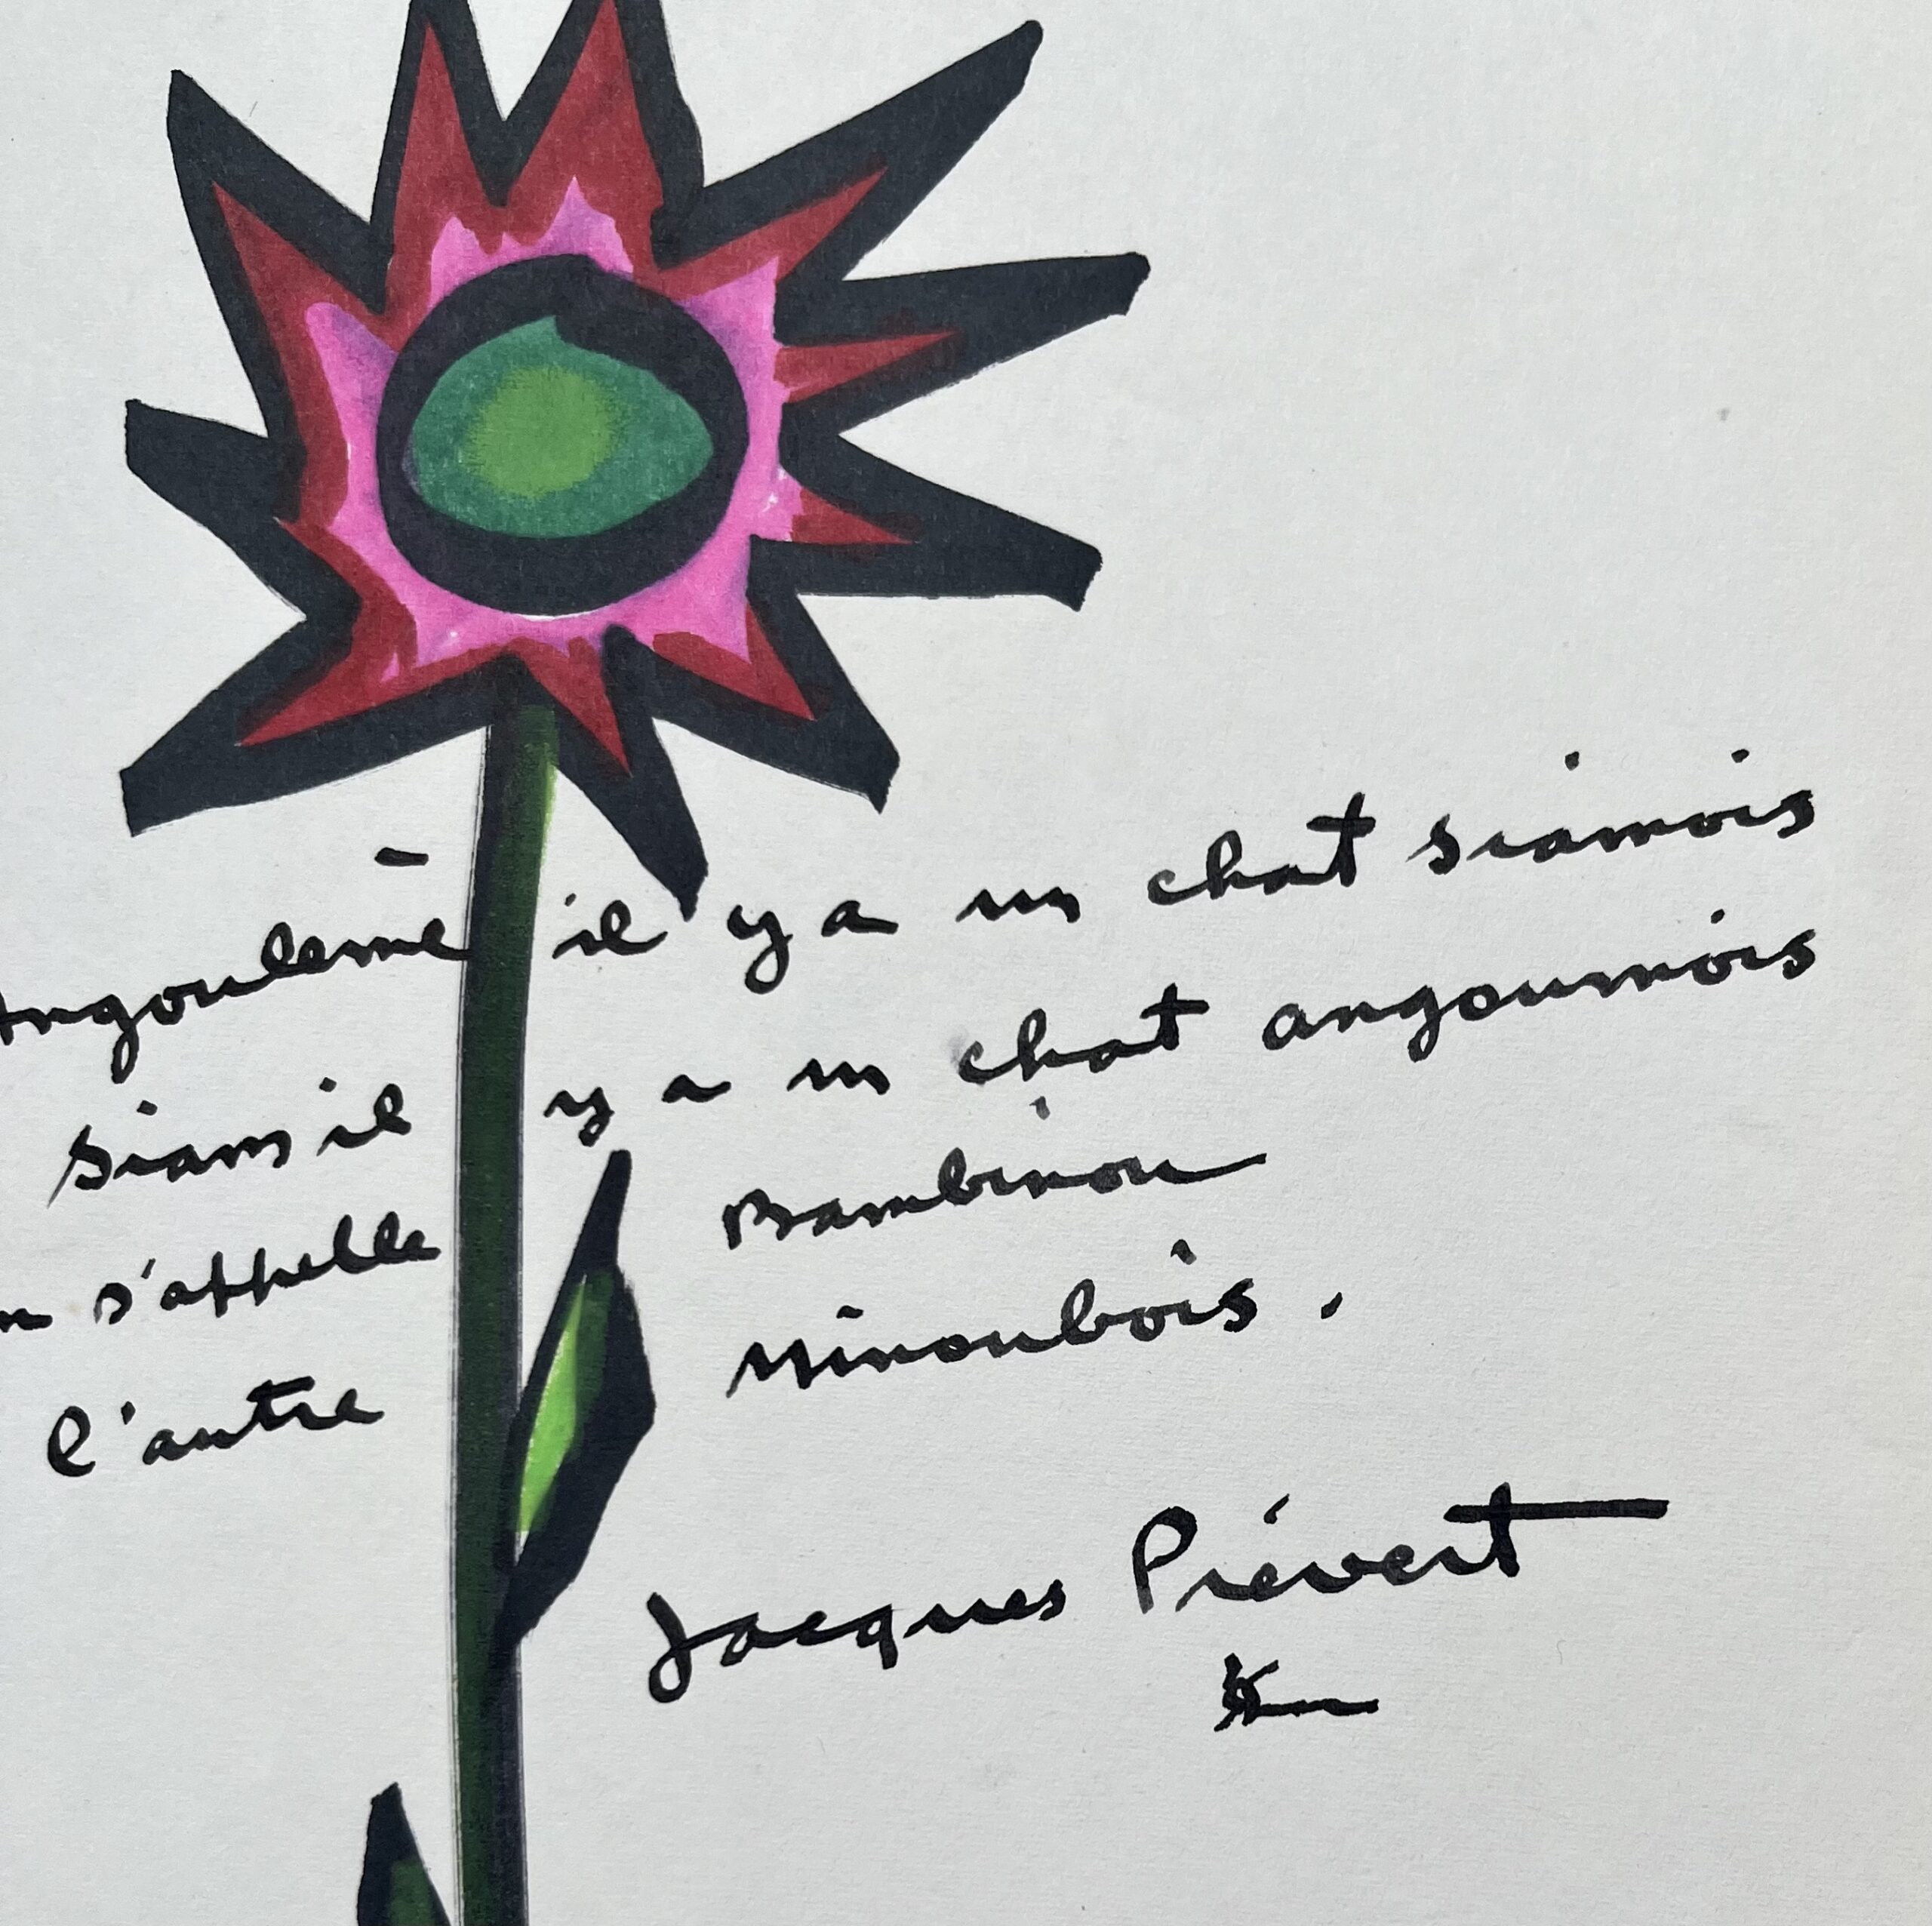 Angoulême il y a un chat siamois
Siam il y a un chat angoumois
s'appelle Bambinou
l'autre Minoubois.
Jacques Prévert